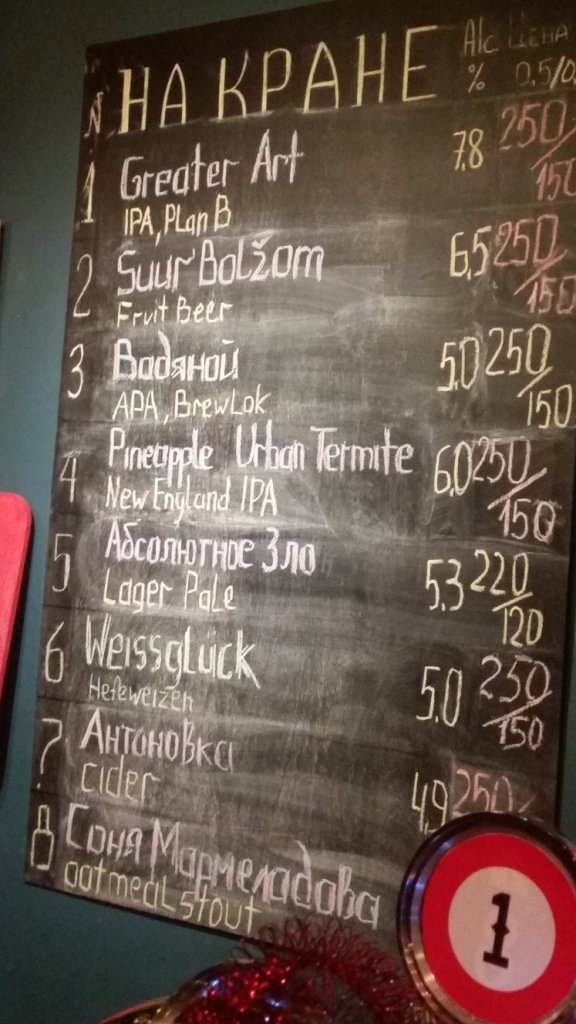 N НА КРАНЕ Alc % ЦЕНА 0,5/0,
1 Greater Art 7.8 250/150
IPA, PLan B
2 Suur Bolžom 6,5 250/150
Fruit Beer
3 Вадяной 5.0 250/150
APA, BrewLok
4 Pineapple Urban Termite 6.0 250/150
New England IPA
5 Абсолютное Зло 5.3 220/120
Lager Pale
6 Weissglück 5.0 250/150
Hefeweizen
7 Антоновка 4,9 250
cider
8 Соня Мармеладова
oatmeal stout
1